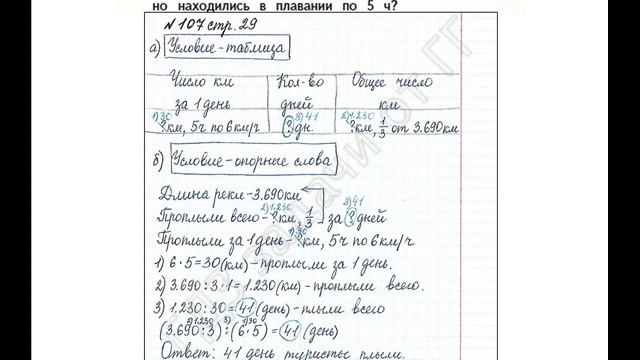 но находились в плавании по 5 ч?
№ 107 стр. 29
а) Условие-таблица
Число км за 1 день
Кол-во дней
Общее число км
1) 30
?км, 5ч по 6 км/ч
3) 41
? дн.
2) 1.230
?км, 1/3 от 3.690км
б) Условие-опорные слова
Длина реки-3.690км
2) 1.230 3) 41
Проплыли всего-?км, 1/3 за ? дней
1) 30
Проплыли за 1 день-?км, 5ч по 6 км/ч
1) 6·5=30(км)-проплыли за 1 день.
2) 3.690:3·1=1.230(км)-проплыли всего.
3) 1.230:30=41(день)-плыли всего
2) 1.230 3) 1) 30
(3.690:3):(6·5)=41(день)
Ответ: 41 день туристы плыли.